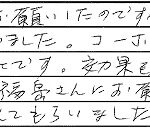 お願いしたのですが
ました。コーホ
です。効果も
福島さんにお願
てもらいました